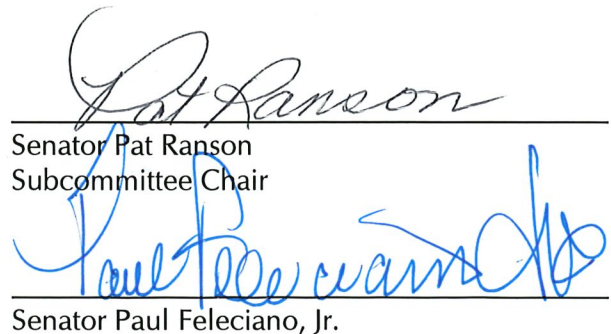 Pat Ranson
Senator Pat Ranson
Subcommittee Chair
Paul Feleciano Jr
Senator Paul Feleciano, Jr.